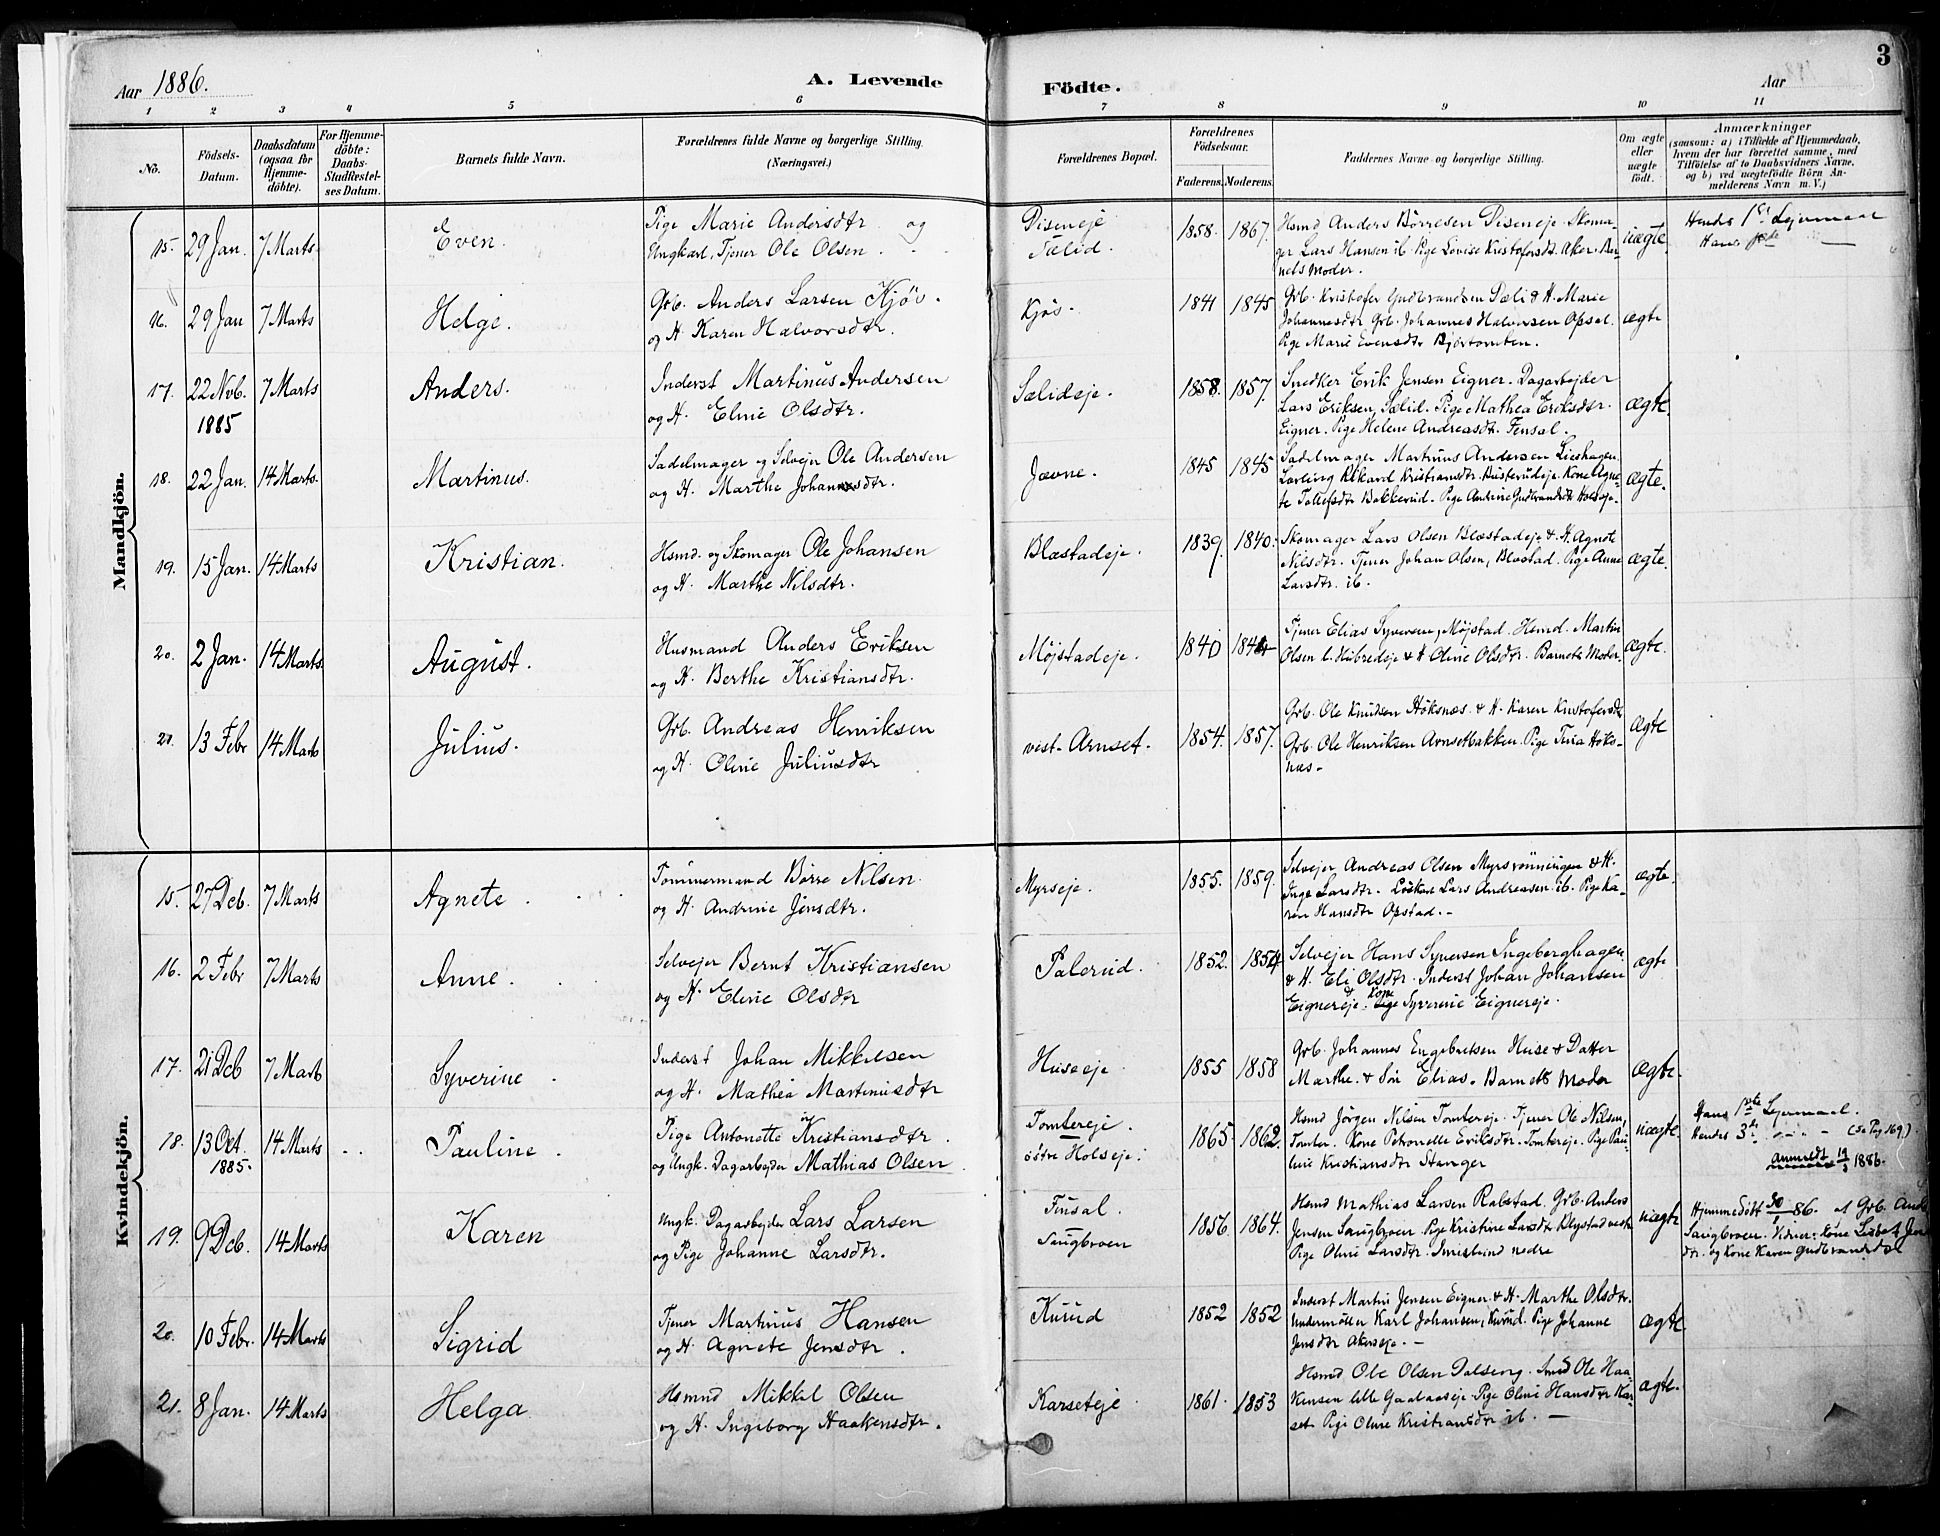 Aar 1886.
A. Levende
Födte.
Aar
3
1 2 3 4 5 6 7 8 9 10 11
No.
Födsels-
Datum.
Daabsdatum
(ogsaa for
Hjemme-
döbte).
For Hjemme-
döbte:
Daabs-
Stadfæstel-
ses Datum.
Barnets fulde Navn.
Forældrenes fulde Navne og borgerlige Stilling
(Næringsvei.)
Forældrenes Bopæl.
Forældrenes
Födselsaar.
Faderens. Moderens.
Faddernes Navne og borgerlige Stilling.
Om ægte
eller
uægte
födt.
Anmærkninger
(saasom: a) i Tilfælde af Hjemmedaab,
hvem der har forrettet samme, med
Tilföielse af to Daabsvidners Navne,
og b) ved uægtefödte Börn An-
melderens Navn m. V.)
Mandkjön.
15. 29 Jan. 7 Marts Even.
Pige Marie Andersdtr og
Ungkarl, Tjener Ole Olsen.
Diseneje
Sælid.
1858. 1867.
Hsmd Anders Börresen Diseneje. Skoma-
ger Lars Hansen ib. Pige Lovise Kristofersdt. Aker. Bar-
nets Moder.
uægte.
Hendes 1ste Lejermaal
Hans
16. 29 Jan 7 Marts Helge.
Grb. Anders Larsen Kjös.
og H. Karen Halvorsdtr.
Kjös.
1841 1845
Grb. Kristofer Gudbrandsen Sæli & H. Marie
Johannesdtr Grb. Johannes Halvorsen Opsal.
Pige Marie Evensdtr Bjørtomten.
ægte
17. 22 Nvb. 7 Marts Anders.
1885
Inderst Martinus Andersen
og H. Eline Olsdtr.
Sælideje.
1858. 1857.
Snedker Erik Jensen Eigner. Dagarbejder
Lars Eriksen, Sælid. Pige Mathea Eriksdtr.
Eigner. Pige Helene Andreasdt. Finsal.
ægte.
18. 22 Jan. 14 Marts. Martinus.
Sadelmager og Selvejer Ole Andersen
og H. Marthe Johannesdtr.
Jævne.
1845 1845
Sadelmager Martinus Andersen Lieshagen.
Lærling Rikard Kristiansdtr. Busterudeje. Kone Agne-
te Tollefsdtr Bakkerud. Pige Andrine Gudbrandsdt. Holseje.
ægte.
19. 15 Jan. 14 Marts Kristian.
Hsmd. og Skomager Ole Johansen
og H. Marthe Nilsdtr.
Blæstadeje.
1839. 1840.
Skomager Lars Olsen Blæstadeje & H. Agnete
Nilsdtr. Tjener Johan Olsen, Blæstad. Pige Anne
Larsdtr. ib.
ægte.
20. 2 Jan. 14 Marts. August.
Husmand Anders Eriksen
og H. Berthe Kristiansdtr.
Møjstadeje.
1840 1844
Tjener Elias Syversen, Møjstad. Hsmd. Martin
Olsen l. Hibredeje & H Oline Olsdtr. Barnets Moder.
ægte.
21. 13 Febr 14 Marts Julius.
Grb. Andreas Henriksen
og H. Oline Juliusdtr
vest-Arnset.
1854. 1857.
Grb. Ole Knudsen Höksnæs. & H. Karen Kristofersdtr
Grb. Ole Henriksen Arnsetbakken. Pige Tina Höks-
næs.
ægte
Kvindekjön.
15. 27 Dcb. 7 Marts Agnete.
Tömmermand Börre Nilsen.
og H. Andrine Jensdtr.
Myrseje.
1855. 1859.
Selvejer Andreas Olsen Myrsrönningen & H.
Inge Larsdtr. Löskarl Lars Andreasen ib. Pige Ka-
ren Hansdtr Opstad.
ægte.
16. 2 Febr 7 Marts Anne.
Selvejer Bernt Kristiansen
og H. Eline Olsdtr
Palerud.
1852. 1854
Selvejer Hans Syversen Ingeberghagen
& H. Eli Olsdtr. Inderst Johan Johansen
Eignereje & Kone Syverine Eignereje.
ægte
17. 21 Dcb 7 Marts Syverine.
Inderst Johan Mikkelsen
og H. Mathea Martinusdtr
Huseeje.
1855 1858
Grb. Johannes Engebretsen Huse & Datter
Marthe & Sön Elias. Barnets Moder
ægte.
18. 13 Oct. 14 Marts Pauline.
1885.
Pige Antonette Kristiansdtr.
og Ungk. Dagarbejder Mathias Olsen.
Tomtereje.
östre Holseje.
1865. 1862.
Hsmd Jörgen Nilsen Tomtereje. Tjener Ole Nilsen,
Tomter. Kone Petronelle Eriksdtr. Tomtereje. Pige Pau-
line Kristiansdtr Stanger
uægte.
Hans 1ste Lejermaal.
Hendes 3die (Se Pag 169).
Anmeldt 19/3 1886.
19. 9 Dcb. 14 Marts Karen
Ungk. Dagarbejder Lars Larsen
og Pige Johanne Larsdtr.
Finsal.
Saugbroen
1856. 1864.
Hsmd Mathias Larsen Ralstad. Grb. Anders
Jensen Saugbroen. Pige Kristine Larsdtr Blystad vestre
Pige Oline Larsdtr. Imislund nedre
uægte
Hjemmedöbt 30/1 86. af Grb. Anders
Saugbroen. Vidner: Kone Lisbet Jens-
dtr. og Kone Karen Gudbrandsdtr
20. 10 Febr. 14 Marts Sigrid
Tjener Martinus Hansen
og H. Agnete Jensdtr.
Kurud
1852 1852
Inderst Martin Jensen Eigner. & H. Marthe Olsdtr.
Undermöller Karl Johansen, Kurud. Pige Johanne
Jensdtr Akerseje.
ægte.
21. 8 Jan. 14 Marts Helga
Hsmnd Mikkel Olsen
og H. Ingeborg Haakensdtr.
Karseteje
1861. 1853
Hsmd Ole Olsen Dalseng. Smed Ole Haa-
kensen lille Gaalaaseje. Pige Oline Hansdtr Kar-
set. Pige Oline Kristiansdtr ib.
ægte.